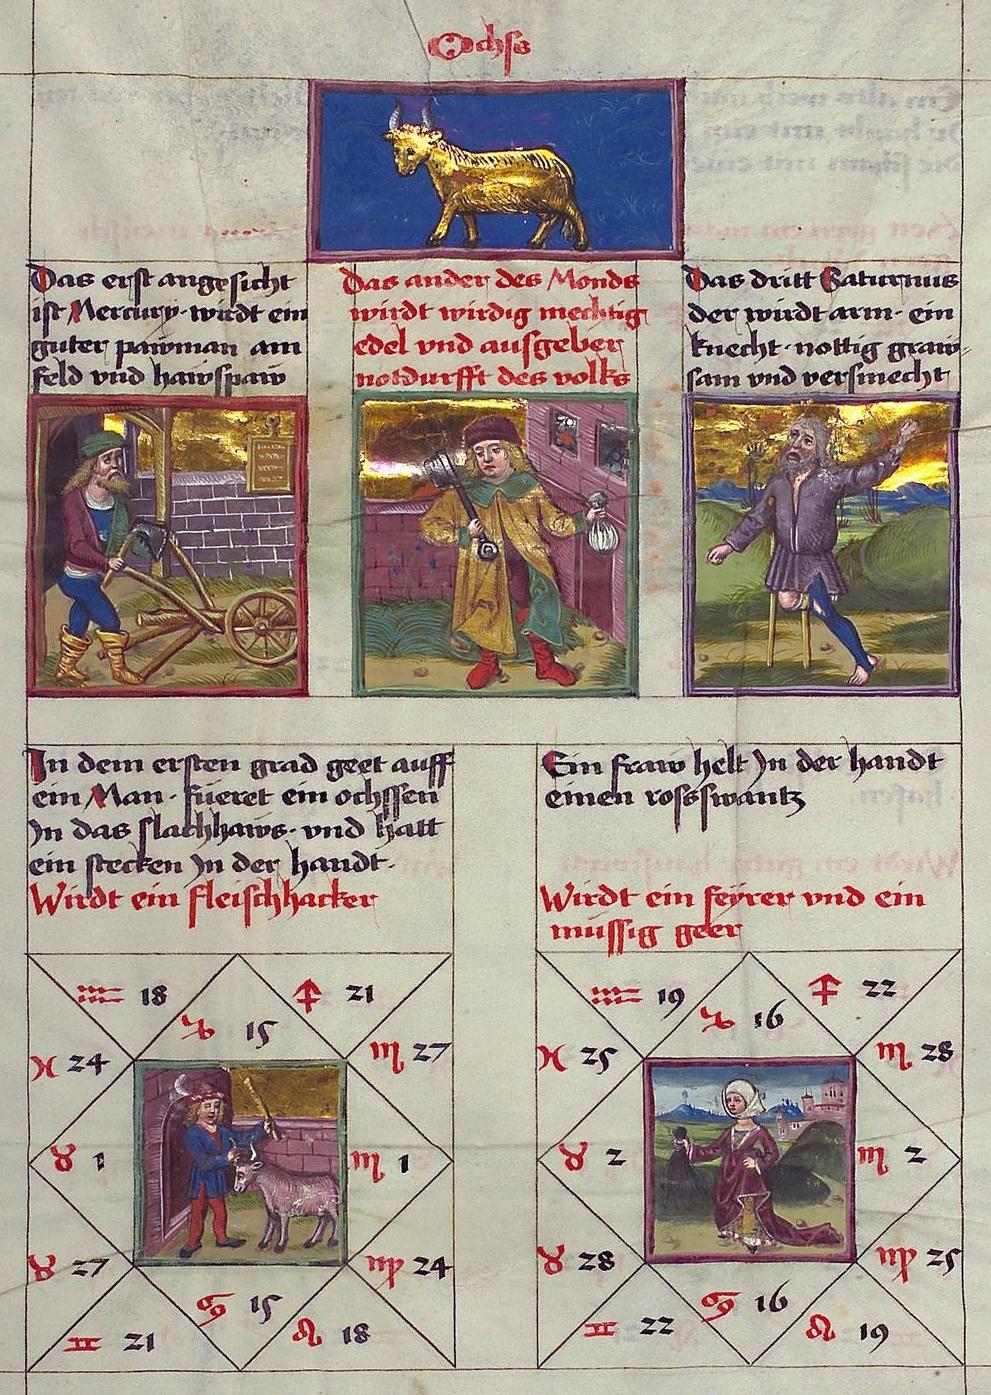 Ochs
Das erst angesicht
ist Mercury · wirdt ein
guter pawman am
feld vnd hawspaw
Das ander des Monds
wirdt wirdig mechtig
edel vnd ausgeber
notdurfft des volks
Das dritt Saturnus
der wirdt arm · ein
knecht · nottig graw
sam vnd versmecht
In dem ersten grad geet auff
ein Man · fueret ein ochssen
In das slachhaws · vnd hatt
ein stecken In der handt ·
Wirdt ein fleischhacker
Ein fraw helt In der handt
einen rossswantz
Wirdt ein feyrer vnd ein
müssig geer
♒ 18
♐ 21
♑ 15
♓ 24
♏ 27
♉ 1
♏ 1
♉ 27
♍ 24
♋ 15
♊ 21
♌ 18
♒ 19
♐ 22
♑ 16
♓ 25
♏ 28
♉ 2
♏ 2
♉ 28
♍ 25
♋ 16
♊ 22
♌ 19